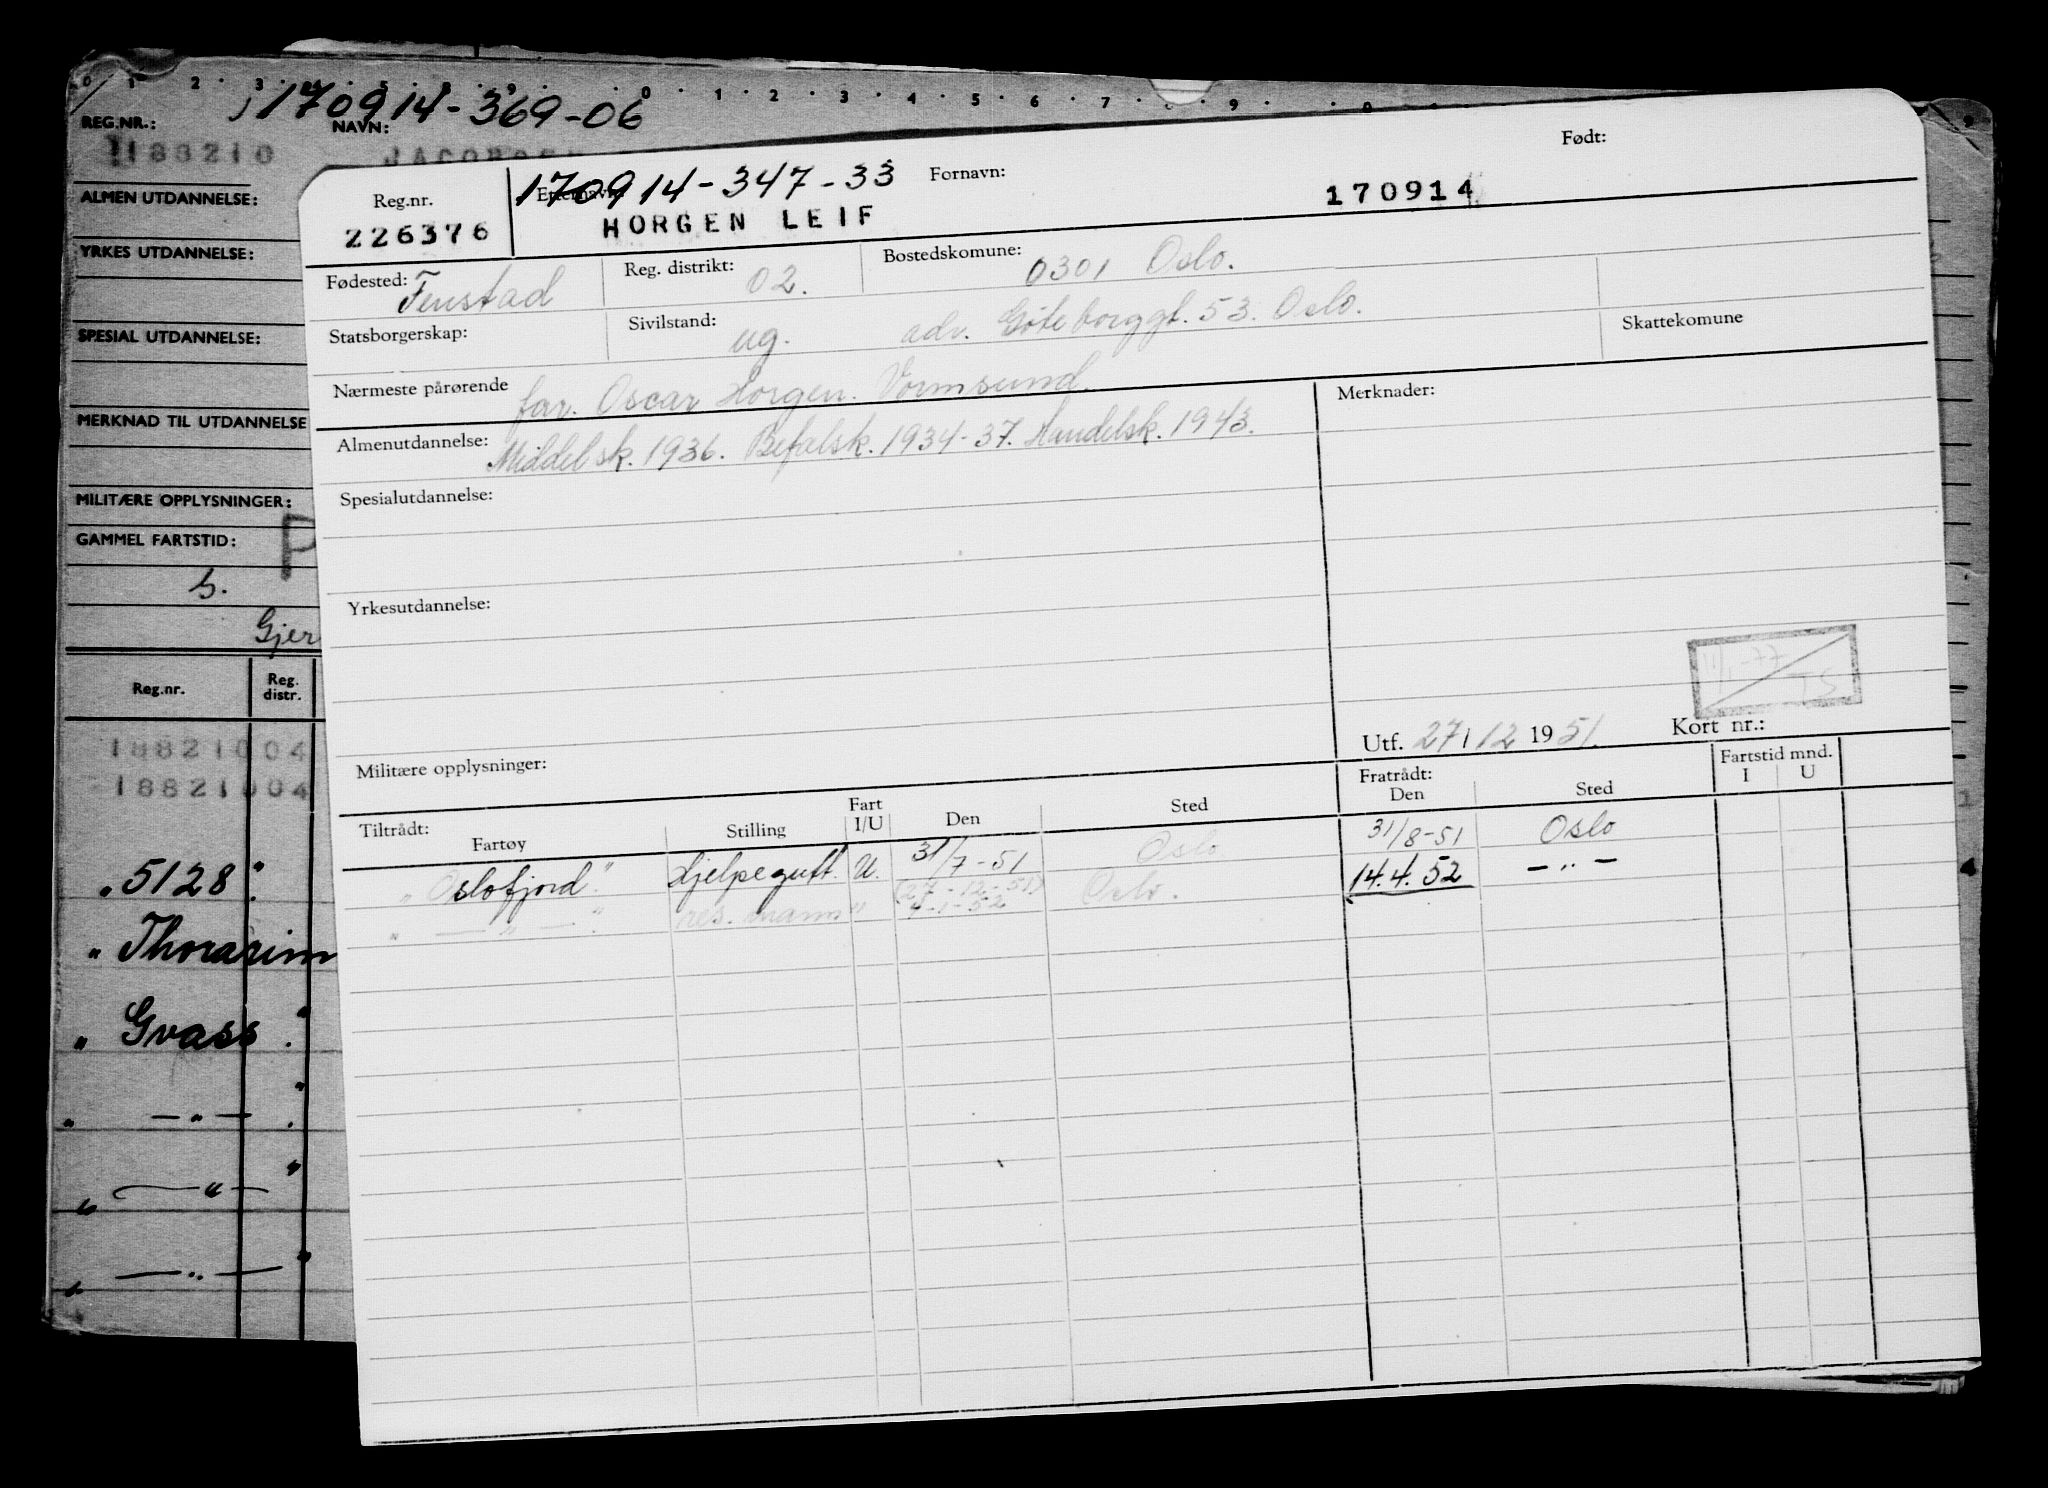 0 1 2 3 4 5 0 1 2 3 4 5 6 7 9
170914-369-06
REG.NR.: NAVN:
188210
ALMEN UTDANNELSE:
YRKES UTDANNELSE:
SPESIAL UTDANNELSE:
MERKNAD TIL UTDANNELSE
MILITÆRE OPPLYSNINGER:
GAMMEL FARTSTID: P
s.
Gjer
Reg.nr. Reg. distr.
18821004
18821004
„5128".
„Thorarinn
„Gvass".
„ — „ — ".
„ — „ — "
„ — „ — "
Reg.nr. Etternavn: 170914-347-33 Fornavn: Født:
226376 HORGEN LEIF 170914
Fødested: Fenstad Reg. distrikt: 02. Bostedskomune: 0301 Oslo.
Statsborgerskap: Sivilstand: ug. adr. Göteborggt. 53. Oslo. Skattekomune
Nærmeste pårørende far. Oscar Horgen. Vormsund.
Merknader:
Almenutdannelse: Middelsk. 1936. Befalsk. 1934-37. Handelsk. 1943.
Spesialutdannelse:
Yrkesutdannelse:
11/1-77 TS
Utf. 27/12 1951. Kort nr.:
Militære opplysninger:
Tiltrådt: Fartøy Stilling Fart I/U Den Sted Fratrådt: Den Sted Fartstid mnd. I U
„Oslofjord" Hjelpegutt. U. 31/7-51 Oslo 31/8-51 Oslo
„ — „ — " res. mann " (27-12-51) 4-1-52 Oslo. 14.4.52 — „ —